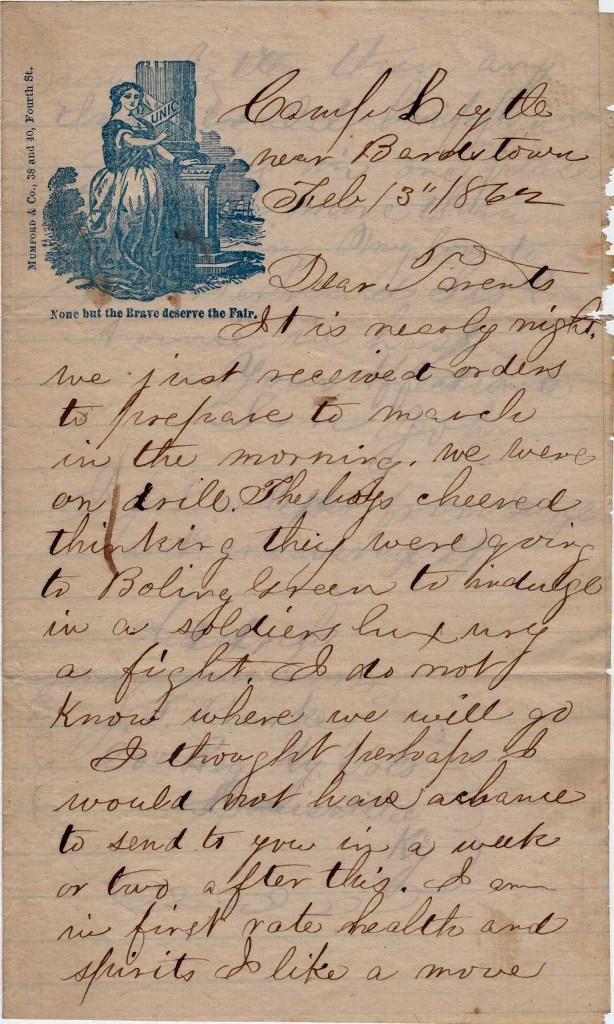 Mumford & Co., 38 and 40, Fourth St.
UNIO
None but the Brave deserve the Fair.
Camp Lytle
near Bardstown
Feb 13" 1862
Dear Parents
It is nearly night.
we just received orders
to prepare to march
in the morning. we were
on drill. The boys cheered
thinking they were going
to Boling Green to indulge
in a soldiers luxury
a fight. I do not
know where we will go
I thought perhaps I
would not have a chance
to send to you in a week
or two after this. I am
in first rate health and
spirits I like a move